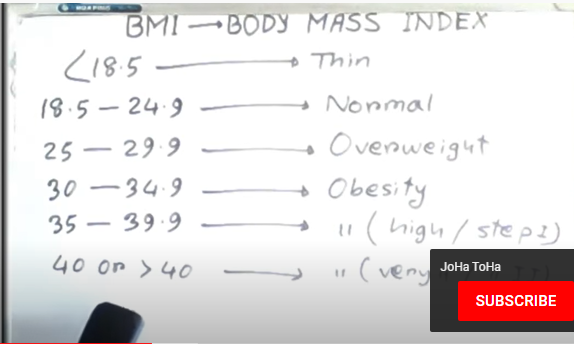 BMI → BODY MASS INDEX
<18.5 → Thin
18.5 — 24.9 → Normal
25 — 29.9 → Overweight
30 — 34.9 → Obesity
35 — 39.9 → " (high / step I)
40 or > 40 → " (very
JoHa ToHa
SUBSCRIBE